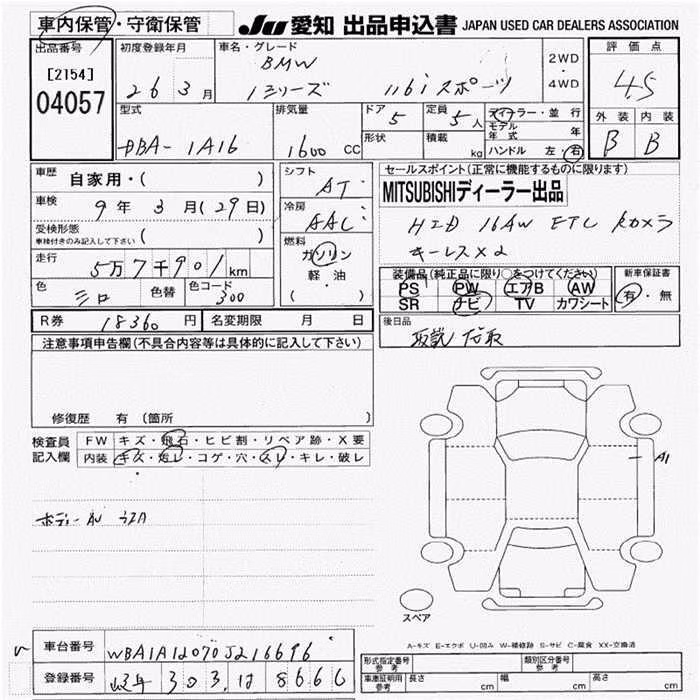 車内保管・守衛保管
JU 愛知 出品申込書 JAPAN USED CAR DEALERS ASSOCIATION
出品番号
[2154]
04057
初度登録年月
26 3月
車名・グレード
BMW
1シリーズ 116iスポーツ
2WD
・
4WD
評価点
4.5
外装 内装
B B
型式
DBA-1A16
排気量
1600 CC
ドア
5
定員
5人
形状
積載
kg
ディーラー・並行
モデル年式 年
ハンドル 左・右
車歴
自家用・( )
車検
9年3月(29日)
受検形態
車検付きのみ記入して下さい ( )
走行
5万7千901km
色
シロ
色替
色コード
300
シフト
AT
冷房
AAC
燃料
ガソリン
軽油
( ・ )
セールスポイント(正常に機能するものに限ります)
MITSUBISHIディーラー出品
HID 16AW ETC Bカメラ
キーレス×2
装備品(純正品に限り○をつけてください)
PS PW エアB AW
SR ナビ TV カワシート
新車保証書
有・無
R券 18360円
名変期限 月 日
後日品
取説 記取
注意事項申告欄(不具合内容等は具体的に記入して下さい)
修復歴 有(箇所 )
検査員記入欄
FW キズ・飛石・ヒビ割・リペア跡・X要
内装 キズ・汚レ・コゲ・穴・スレ・キレ・破レ
ボディーAU
A1
スペア
A-キズ E-エクボ U-凹み W-補修跡 S-サビ C-腐食 XX-交換済
車台番号 WBA1A12070J216696
登録番号 303 は 8666
形式指定番号 参考
類別区分番号 参考
車庫証明用 参考
長さ cm
幅 cm
高さ cm